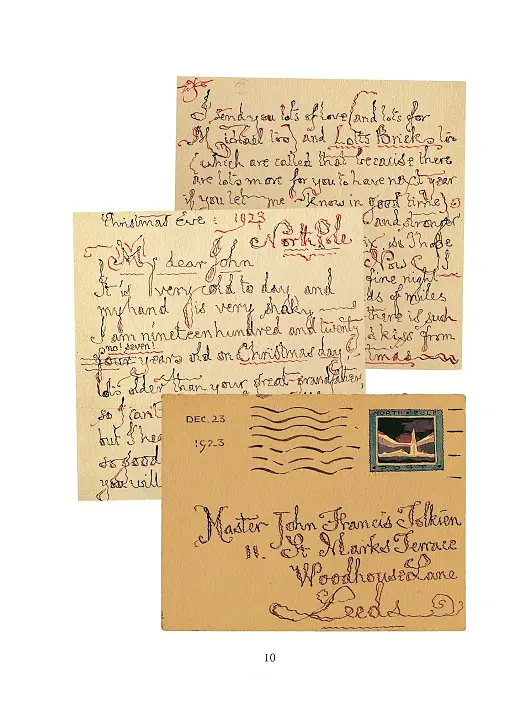 I send you lots of love (and lots for
Michael too) and Lotts Bricks too
(which are called that because there
are lots more for you to have next year
if you let me know in good time)
and stronger
so I hope
Now
fine night
ds of miles
there is such
kiss from
tmas
Christmas Eve: 1923
North Pole
My dear John
It is very cold to day and
my hand is very shaky
I am nineteen hundred and twenty
no! seven!
four years old on Christmas day
lots older than your great-grandfather,
so I can't
but I hea
so good
you will
DEC. 23
1923
NORTH POLE
Master John Francis Tolkien
11. St Marks Terrace
Woodhouse Lane
Leeds
10